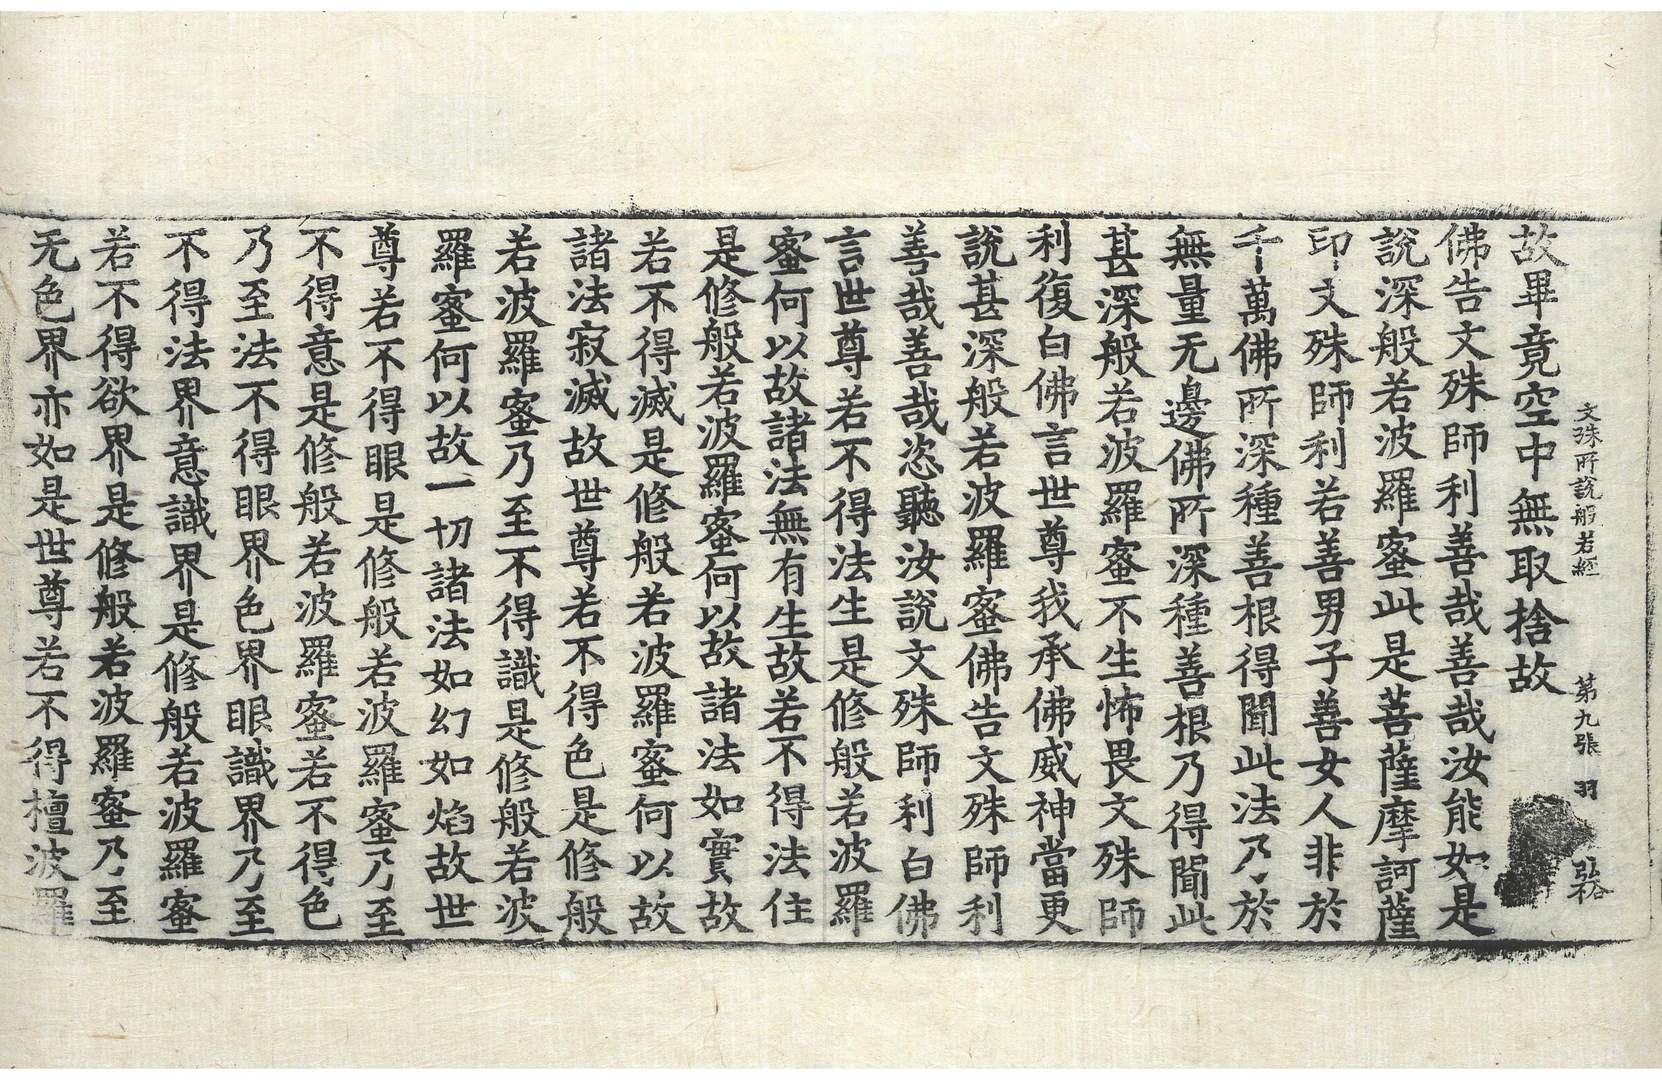 文殊所說般若經　第九張　羽　裕
故畢竟空中無取捨故
佛告文殊師利善哉善哉汝能如是
說深般若波羅蜜此是菩薩摩訶薩
印文殊師利若善男子善女人非於
千萬佛所深種善根得聞此法乃於
無量无邊佛所深種善根乃得聞此
甚深般若波羅蜜不生怖畏文殊師
利復白佛言世尊我承佛威神當更
說甚深般若波羅蜜佛告文殊師利
善哉善哉恣聽汝說文殊師利白佛
言世尊若不得法生是修般若波羅
蜜何以故諸法無有生故若不得法住
是修般若波羅蜜何以故諸法如實故
若不得滅是修般若波羅蜜何以故
諸法寂滅故世尊若不得色是修般
若波羅蜜乃至不得識是修般若波
羅蜜何以故一切諸法如幻如焰故世
尊若不得眼是修般若波羅蜜乃至
不得意是修般若波羅蜜若不得色
乃至法不得眼界色界眼識界乃至
不得法界意識界是修般若波羅蜜
若不得欲界是修般若波羅蜜乃至
无色界亦如是世尊若不得檀波羅